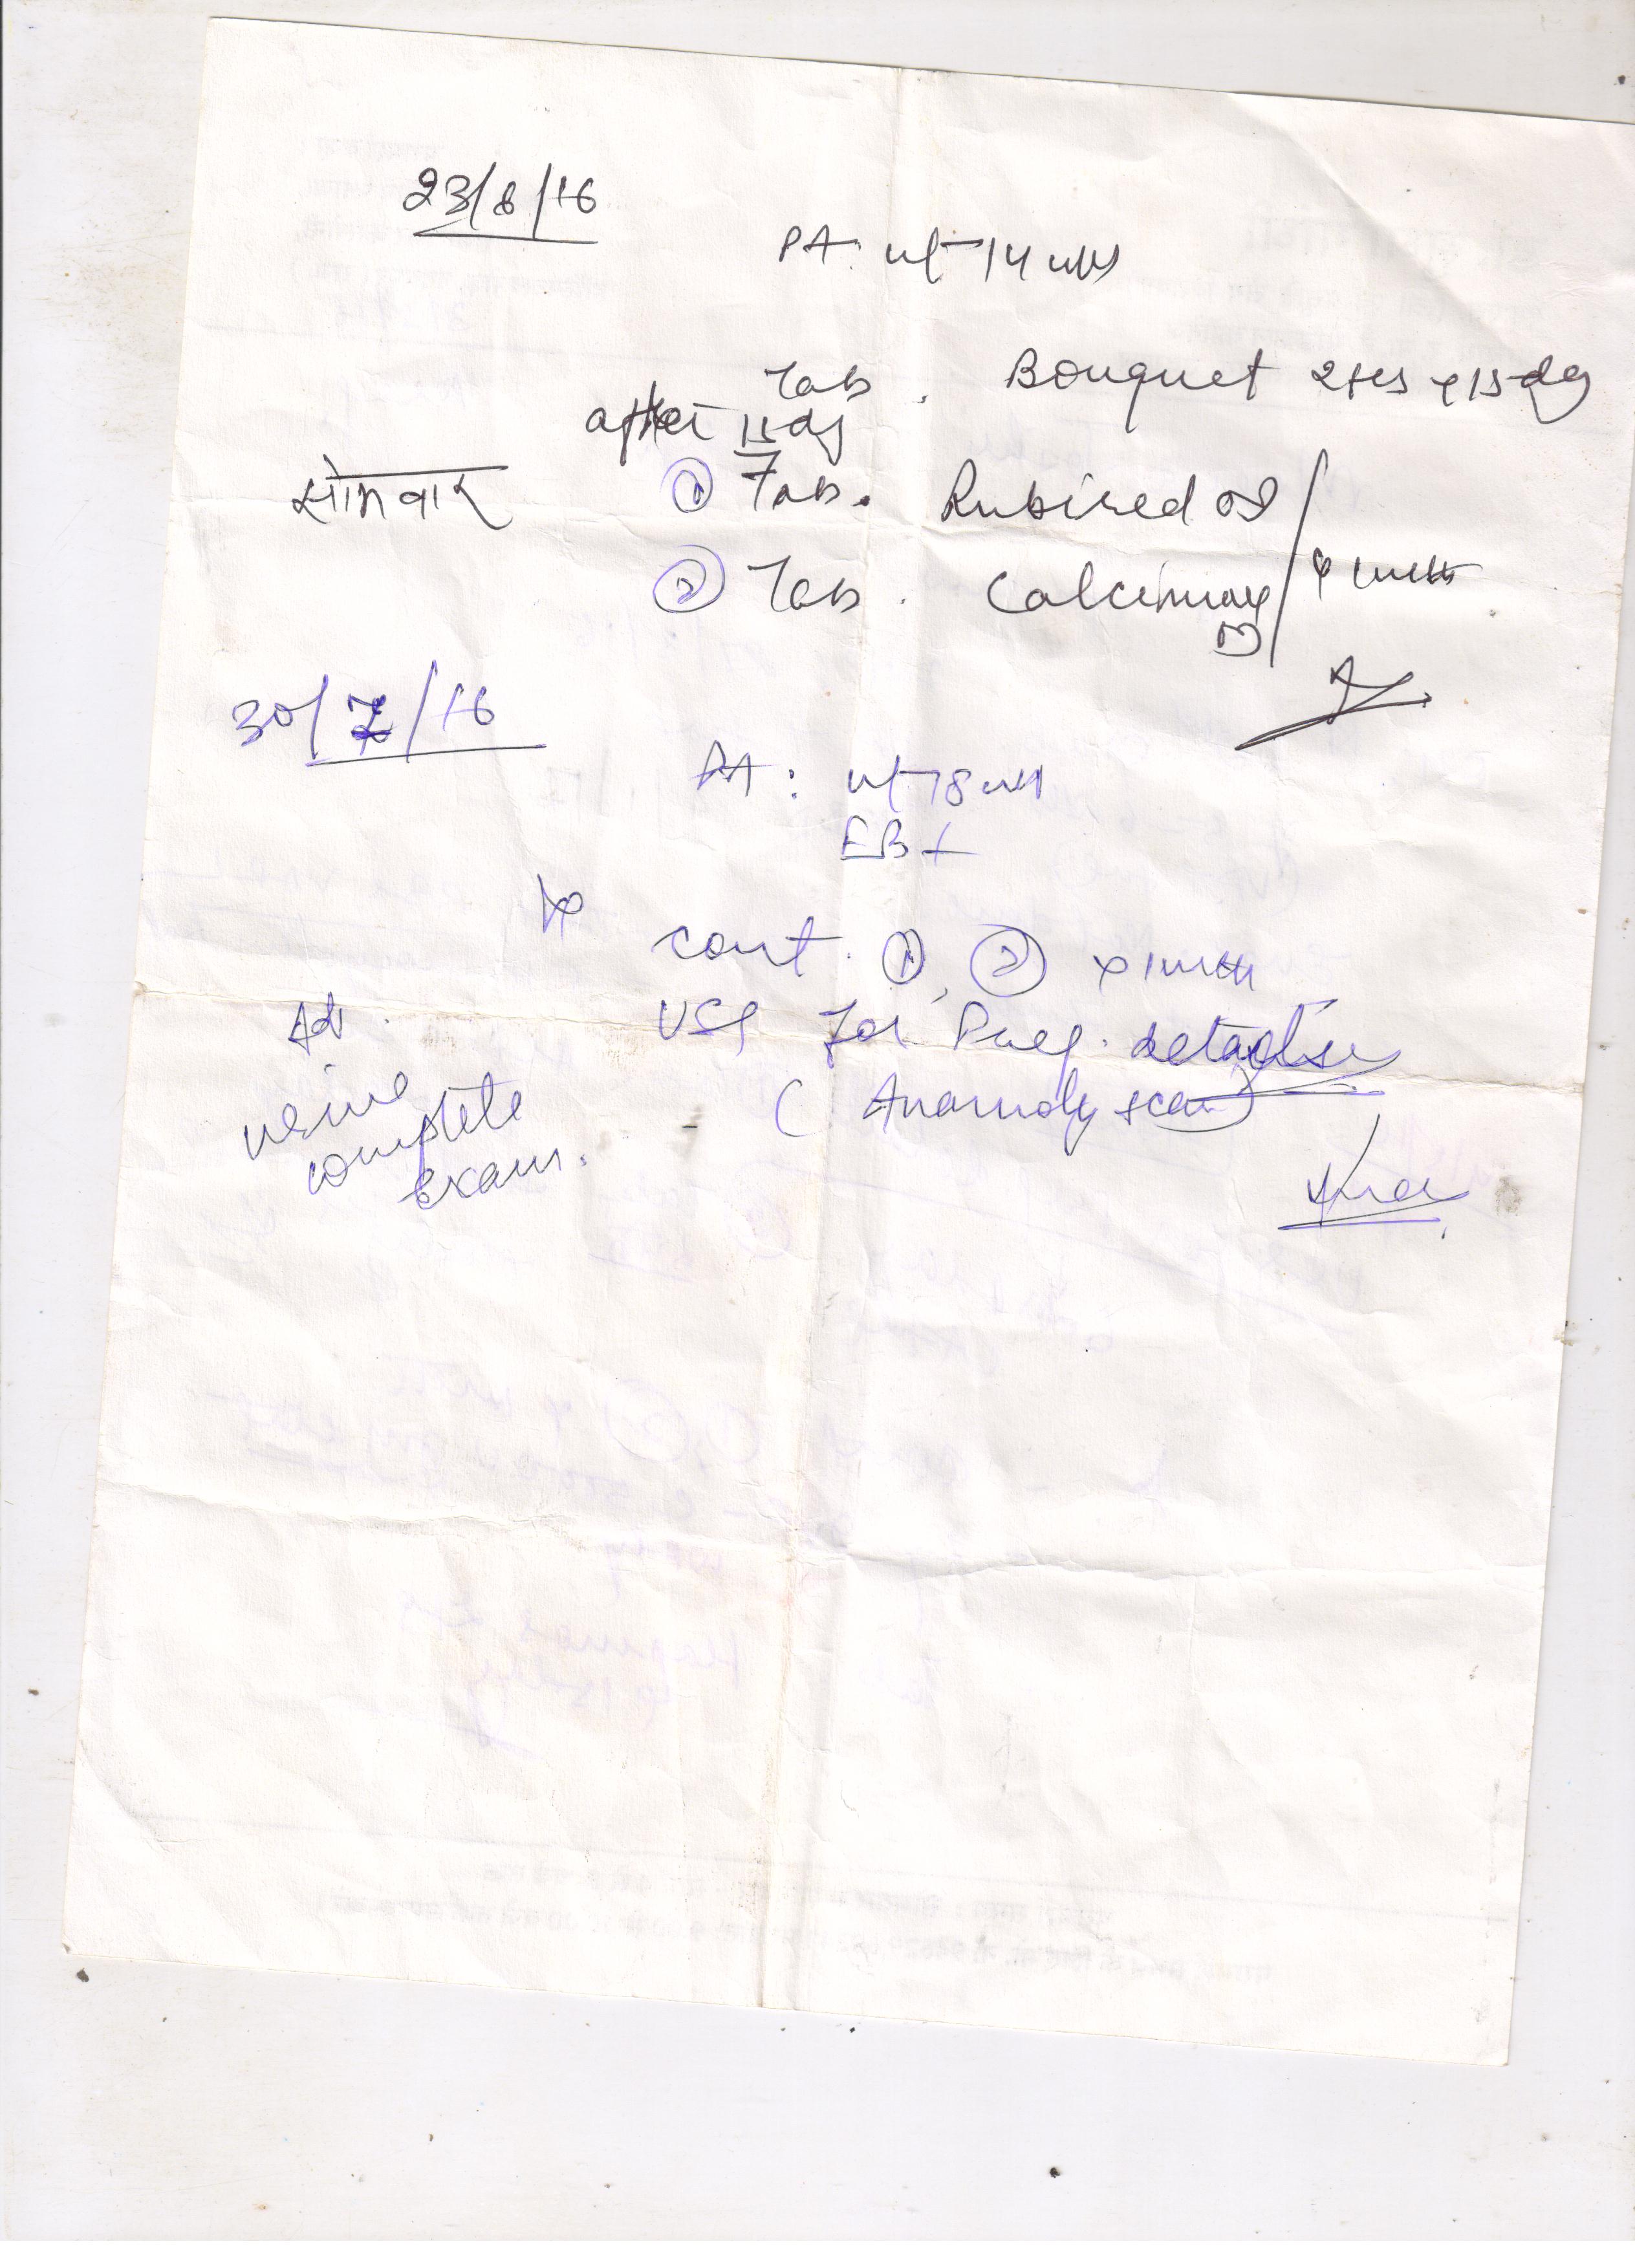 23/6/16
PA: ut 14 wks
Tab. Bouquet 2tds x 15 dy
after 15 dy
सोमवार ① Tab. Rubired
② Tab. Calcimax x 1 mth
30/7/16
PA: ut 18 wks
FB +
cont. ①, ② x 1 mth
Adv. USG for Preg. detail
(Anamoly scan)
urine
complete
exam.